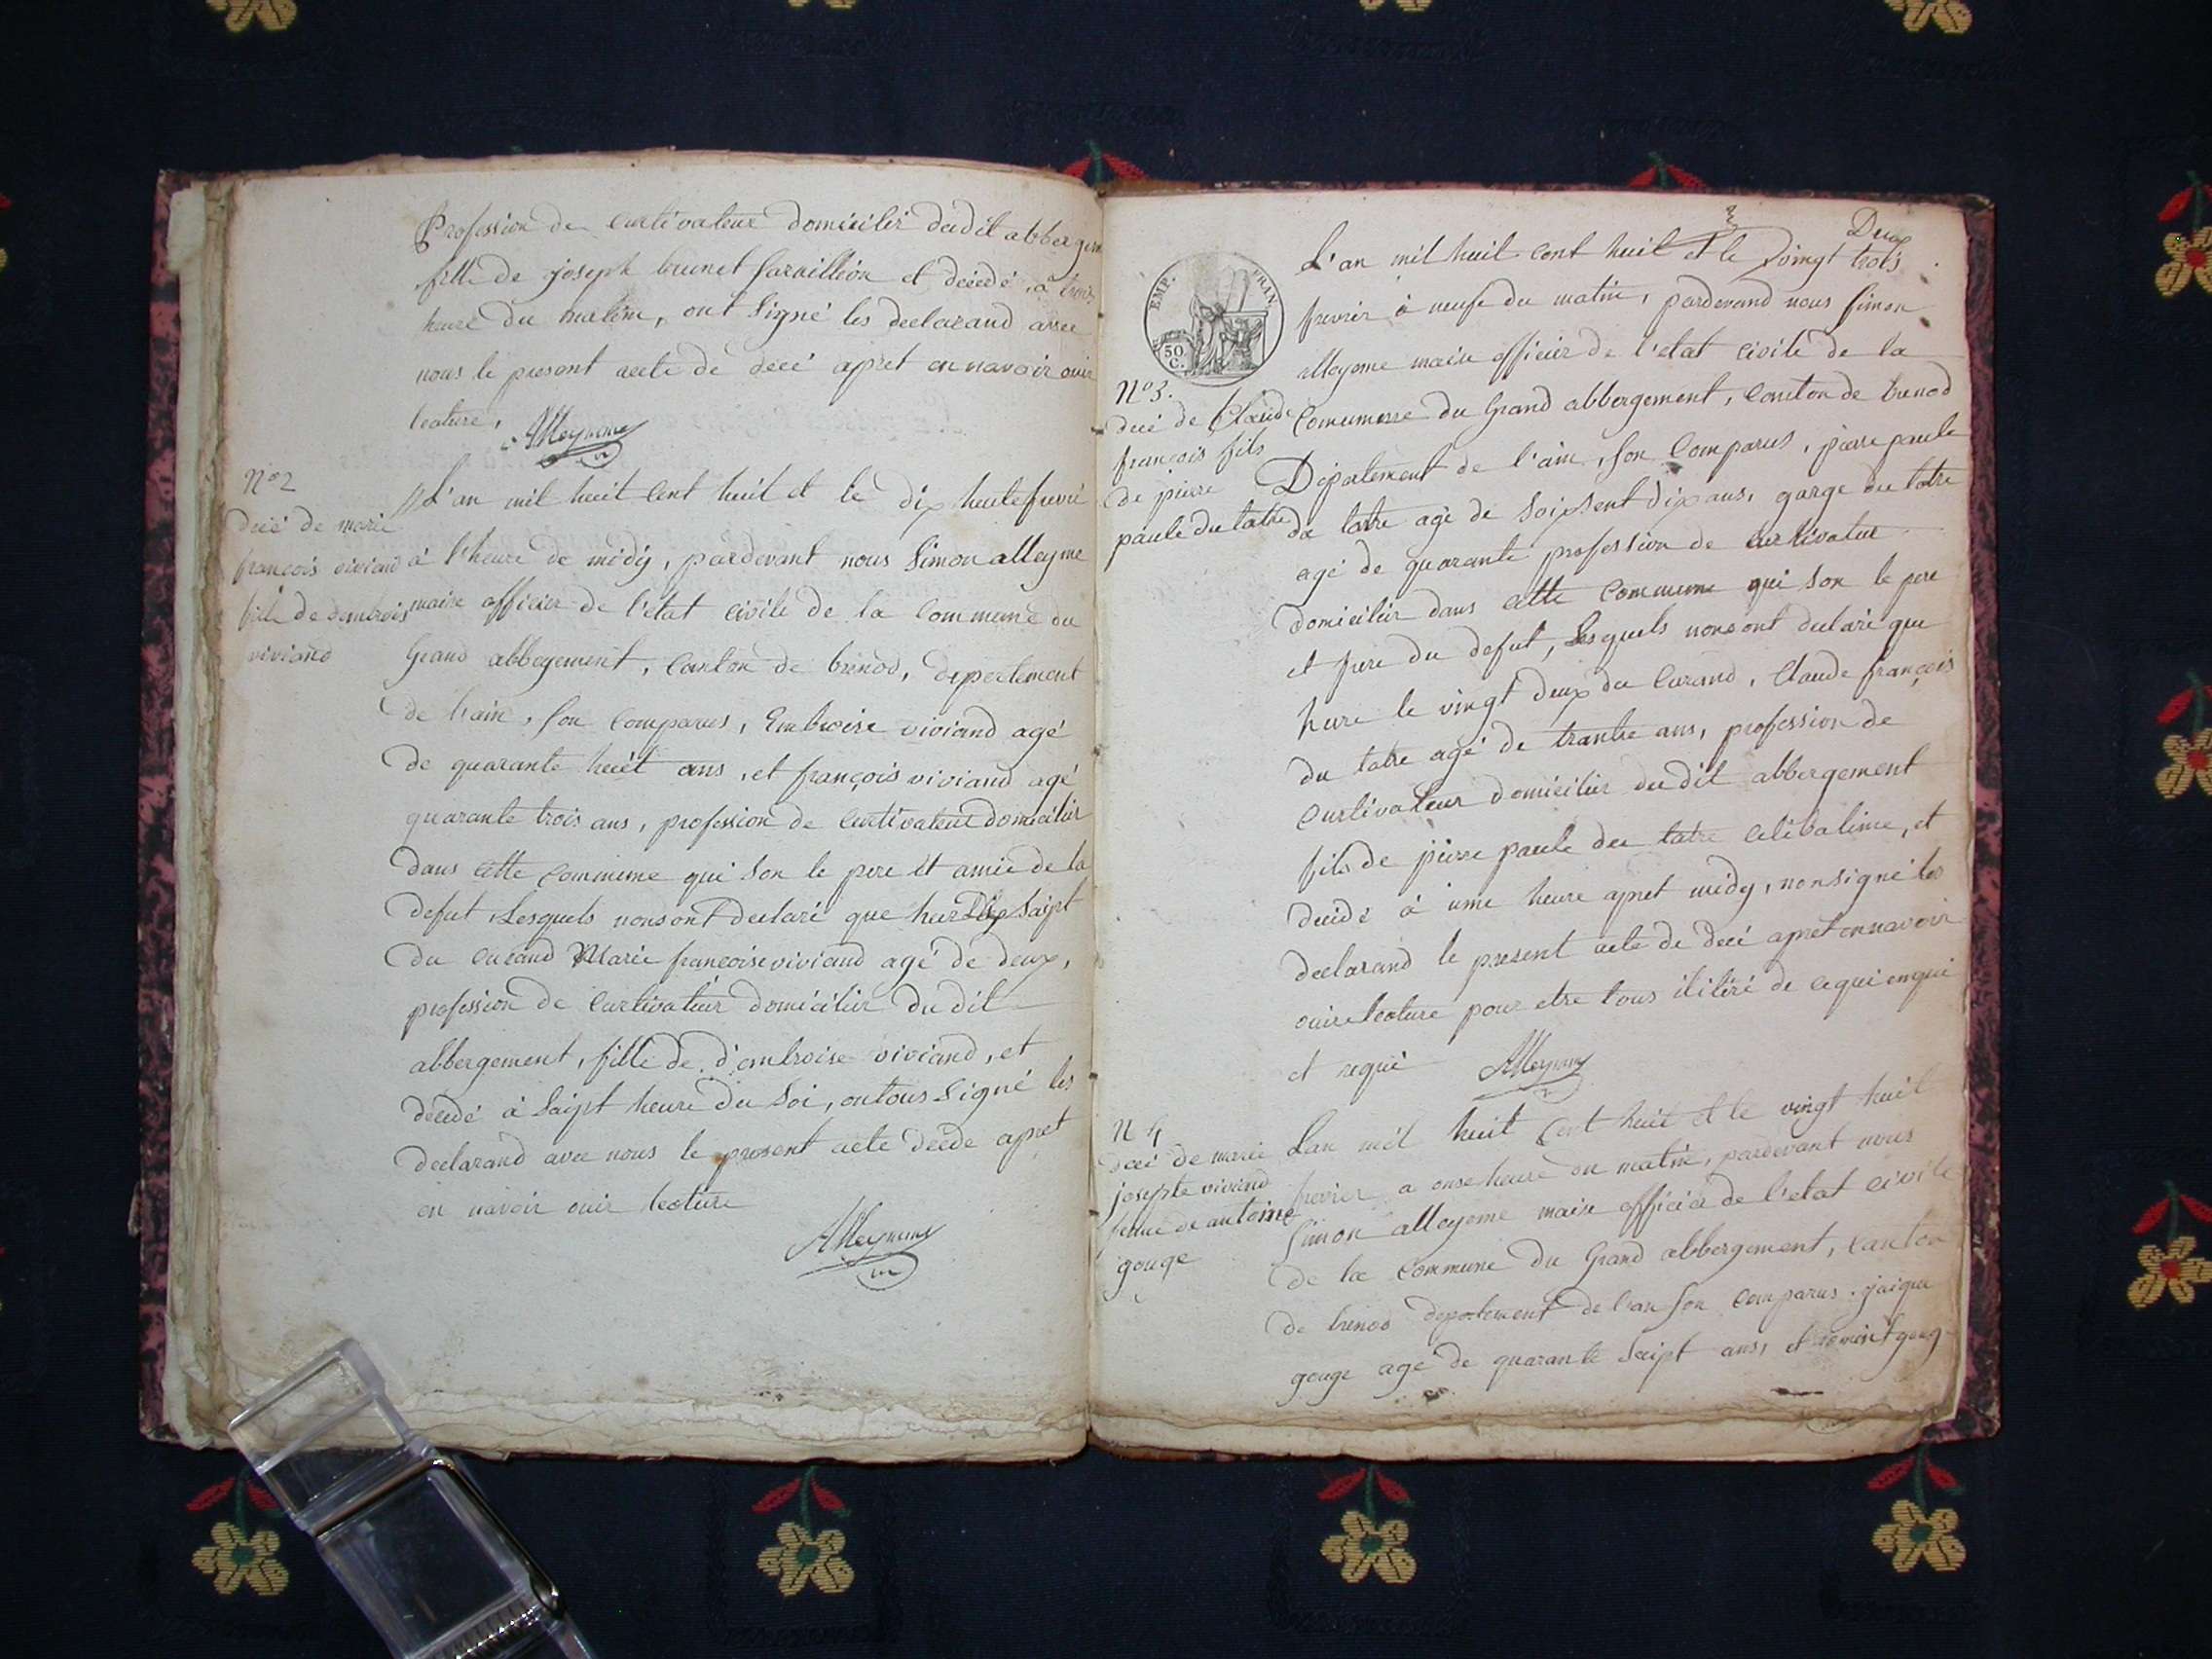 Profession de curtivateur domicilir dudit abbergem
fille de joseph brunet favaillion et décédé, a trois
heure du matin, ont signé les declarand avec
nous le present acte de décé apret en navoir ouir
leature,
Alleymne
N° 2
decé de marie
françois viviand
fille de dembrois
viviand
L'an mil huit cent huit et le dix huite fevrié
à l'heure de midy, pardevant nous Simon alleyme
maire officier de l'état civile de la commune du
Grand abbegement, Canton de brénod, depertement
de l'ain, son comparus, Embroise viviand agé
de quarante huit ans, et françois viviand agé
quarante trois ans, profession de curtivateur domicilir
dans cette commune qui son le pere et amie de la
defut, Lesquels nous ont declaré que hier Dix Saipt
du curand Marie françoise viviand agé de deux,
profession de curtivateur domicilir du dit
abbergement, fille de d'embroise viviand, et
décédé à Saipt heure du Soi, on tous signé les
declarand avec nous le present acte décde apret
en navoir ouir leature
Alleymne
Deux
EMP. FRAN
50 C.
L'an mil huit cent huit et le vingt trois
fevrier à neufe du matin, pardevand nous Simon
alleyme maire officier de l'etat civile de la
N° 3.
decé de Claude
françois fils
de pierre
paule du tatre
Comumene du Grand abbergement, Canton de brenod
Département de l'ain, son comparus, pierre paule
du tatre agé de soipsent dix ans, george du tatre
agé de quarante profession de curtivatur
domicilir dans cette commune qui son le pere
et frere du defut, Lesquels nous ont declaré que
hiere le vingt deux du curand, Claude françois
du tatre agé de trante ans, profession de
curtivateur domicilir du dit abbergement
fils de pierre paule du tatre celibatime, et
décidé à ume heure apret midy, non signé les
declarand le present acte de décé apret en navoir
ouire leature pour etre tous iliteré de ce qui enqui
et requi
Alleymne
N 4
decé de marie
josepte viviand
femme de antoine
gouge
Lan mil huit cent huit et le vingt huit
fevrier a onse heure du matin, pardevant nous
Simon alleyme maire officier de l'etat civile
de la Commune du Grand abbergement, canton
de brenod depertement de l'an son comparus, jaique
gouge agé de quarante saipt ans, et